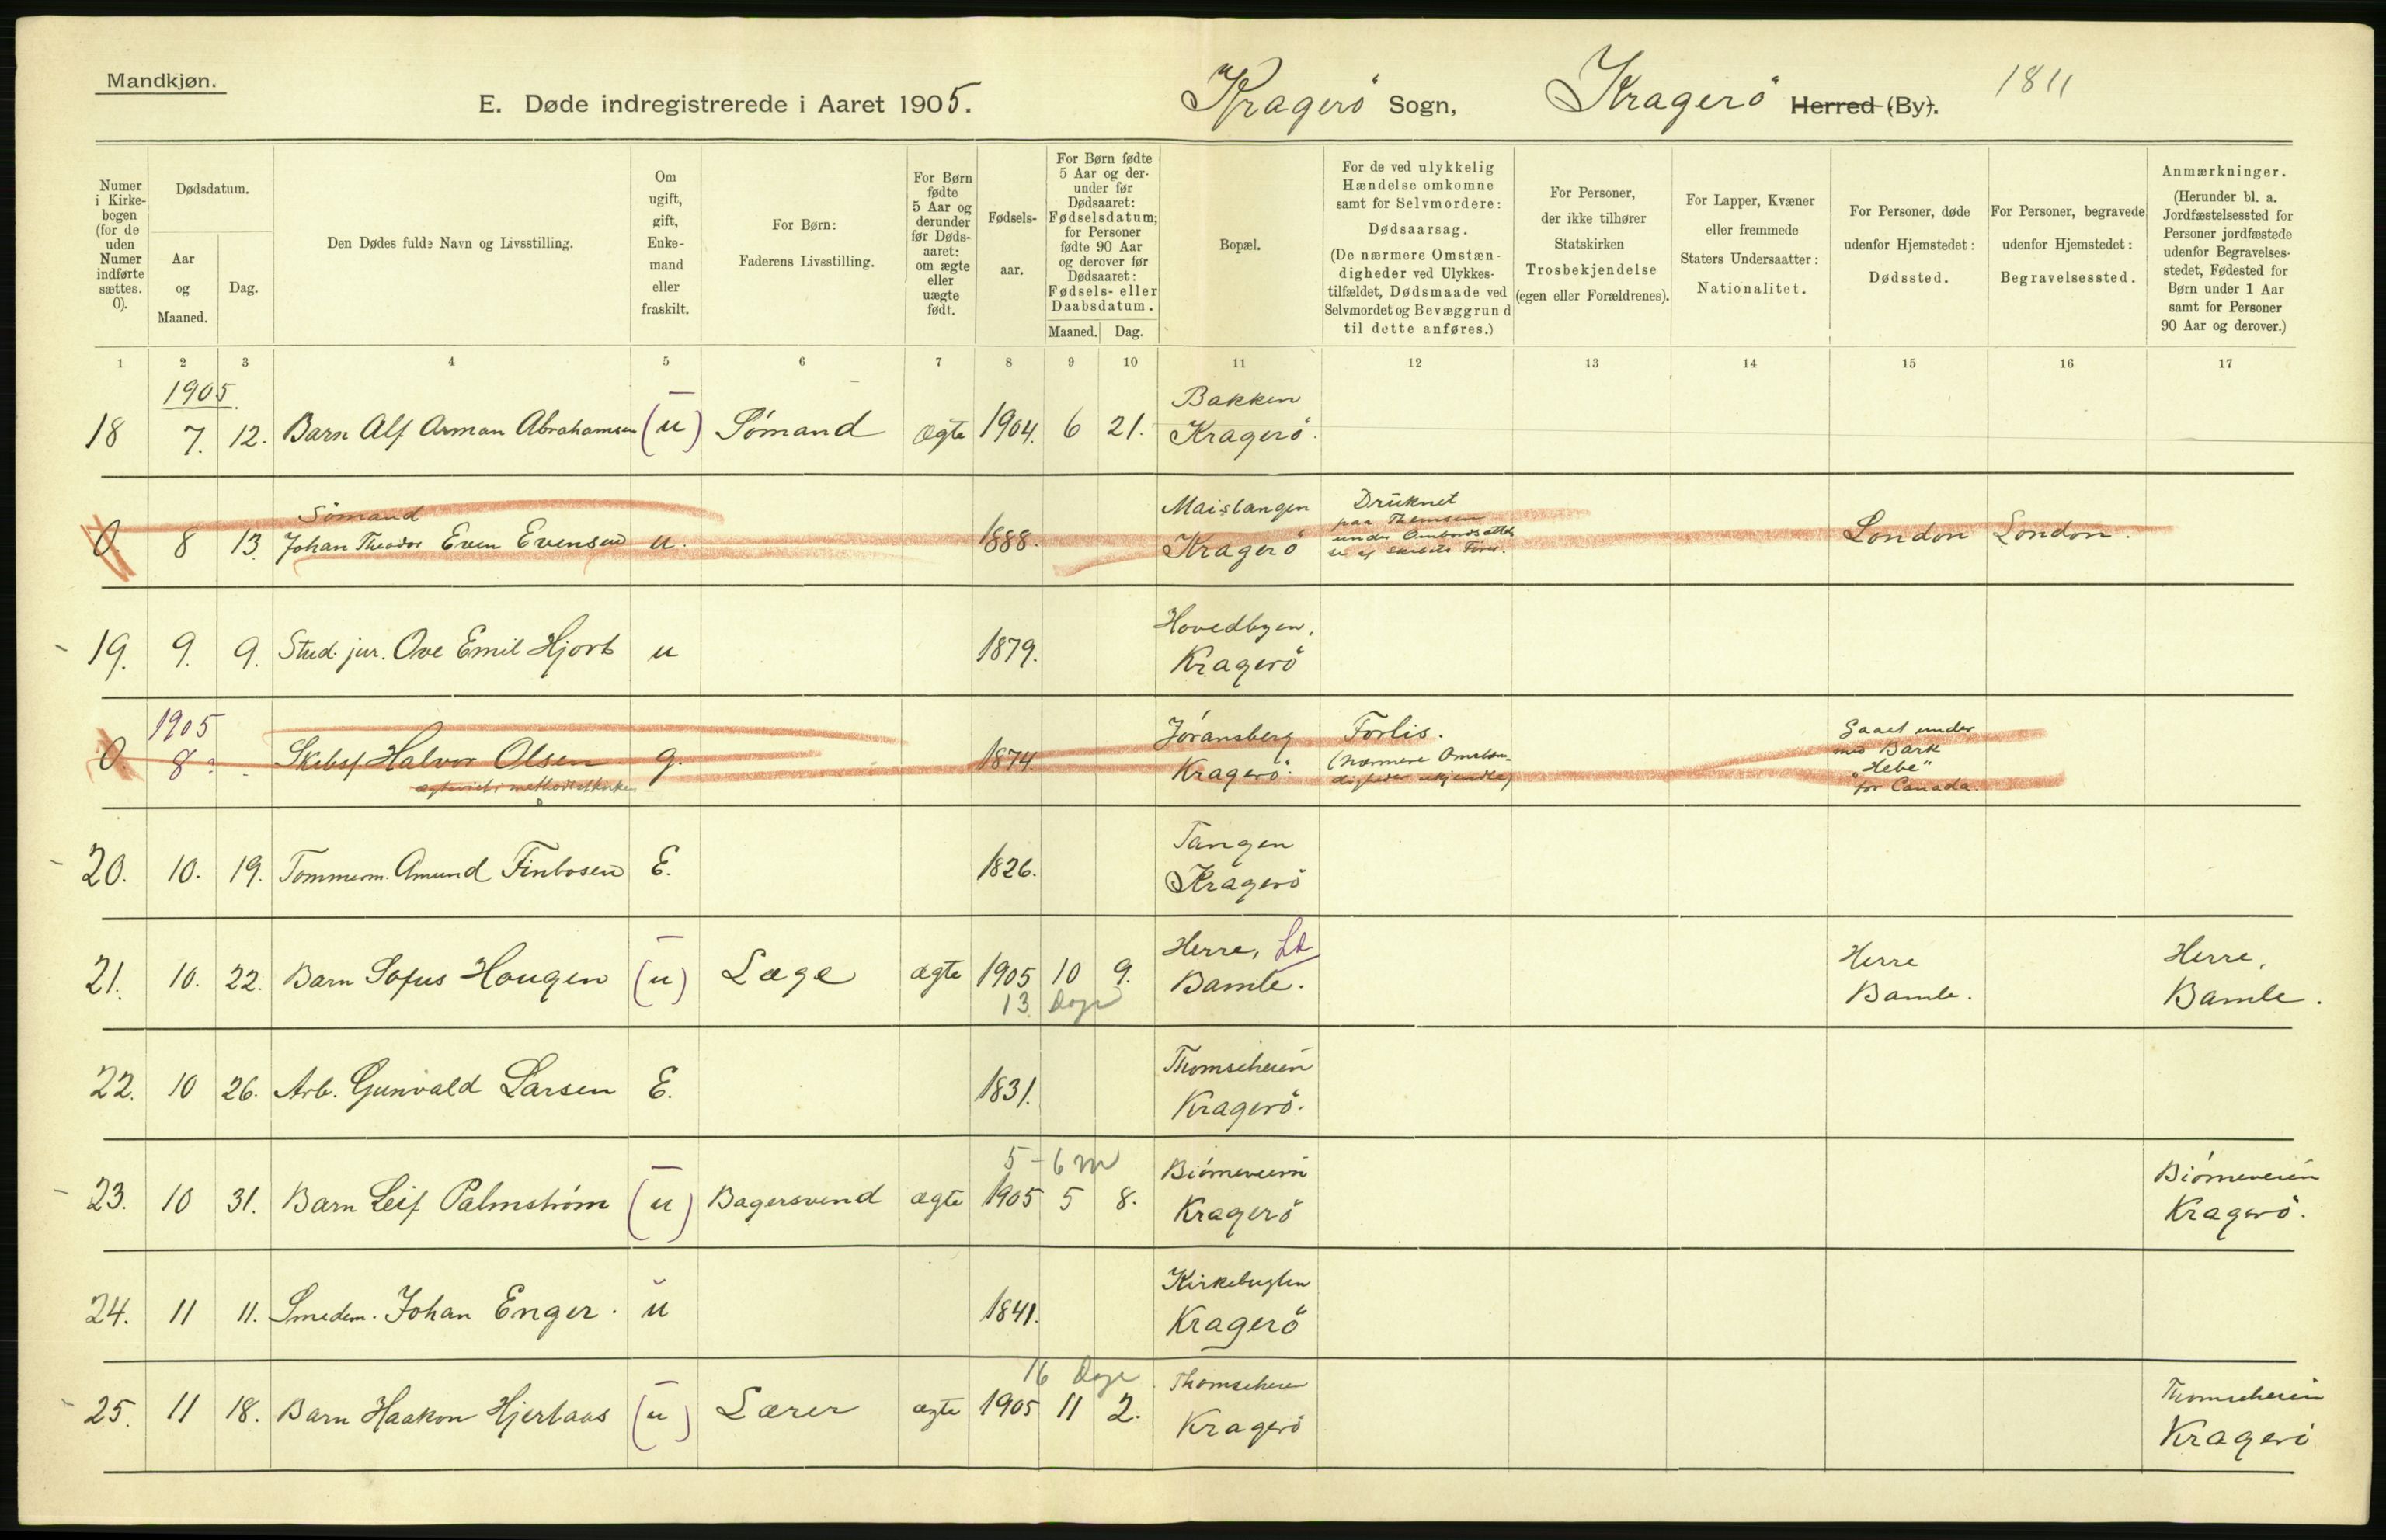 Mandkjøn.
E. Døde indregistrerede i Aaret 1905.
Kragerö Sogn, Kragerö Herred (By).
1811
Numer i Kirkebogen (for de uden Numer indførte sættes. 0).
Dødsdatum.
Aar og Maaned.
Dag.
Den Dødes fulde Navn og Livsstilling.
Om ugift, gift, Enkemand eller fraskilt.
For Børn: Faderens Livsstilling.
For Børn fødte 5 Aar og derunder før Dødsaaret: om ægte eller uægte født.
Fødselsaar.
For Børn fødte 5 Aar og derunder før Dødsaaret: Fødselsdatum; for Personer fødte 90 Aar og derover før Dødsaaret: Fødsels- eller Daabsdatum.
Maaned. Dag.
Bopæl.
For de ved ulykkelig Hændelse omkomne samt for Selvmordere: Dødsaarsag. (De nærmere Omstændigheder ved Ulykkestilfældet, Dødsmaade ved Selvmordet og Bevæggrund til dette anføres.)
For Personer, der ikke tilhører Statskirken Trosbekjendelse (egen eller Forældrenes).
For Lapper, Kvæner eller fremmede Staters Undersaatter: Nationalitet.
For Personer, døde udenfor Hjemstedet: Dødssted.
For Personer, begravede udenfor Hjemstedet: Begravelsessted.
Anmærkninger. (Herunder bl. a. Jordfæstelsessted for Personer jordfæstede udenfor Begravelsesstedet, Fødested for Børn under 1 Aar samt for Personer 90 Aar og derover.)
1 2 3 4 5 6 7 8 9 10 11 12 13 14 15 16 17
1905
Bakken
18 7. 12. Barn Alf Arman Abrahamsen (u) Sómand ægte 1904. 6 21. Kragerö.
Sömand
Maistangen
Druknet
paa Themsen
under
af Skibets
0. 8 13. Johan Theodor Even Evensen u. 1888. Kragerö London London.
Hovedbyen,
19. 9. 9. Stud. jur. Ove Emil Hjort u 1879. Kragerö
1905
Jóransberg
Forlis.
Gaaet under
med Bark
"Hebe"
for Canada.
0 8? Skibsf Halvor Olsen g. 1874 Kragerö.
(nærmere Omstændigheder ukjendte)
Tangen
20. 10. 19. Tommerm. Amund Finbosen E. 1826. Kragerö
Herre,
Herre
Herre,
21. 10. 22. Barn Sofus Hougen (u) Læge ægte 1905 10 9. Bamle. Bamle. Bamle.
13 Dage
Thomseheien
22. 10 26. Arb. Gunvald Larsen E. 1831. Kragerö.
5-6 m
Biórneveien
Biórneveien
23. 10 31. Barn Leif Palmstróm (u) Bagersvend ægte 1905 5 8. Kragerö Kragerö.
Kirkebugten
24. 11 11. Smedem. Johan Enger. u 1841. Kragerö
16 Dage
Thomseheien
Thomseheien
25. 11 18. Barn Haakon Hjertaas (u) Lærer ægte 1905 11 2. Kragerö Kragerö